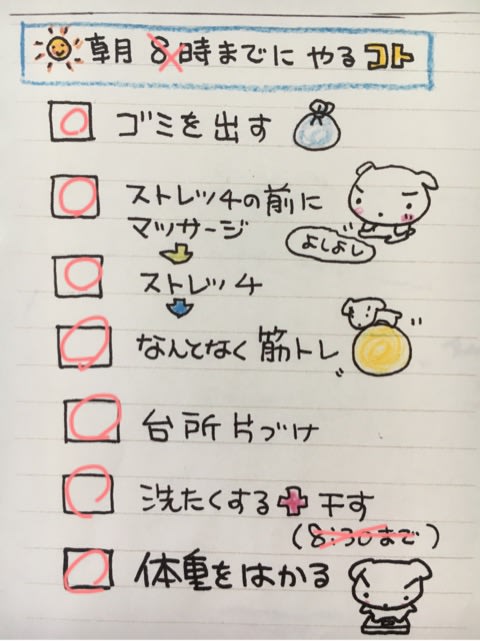 朝8時までにやるコト
ゴミを出す
ストレッチの前に
マッサージ
よしよし
ストレッチ
なんとなく筋トレ
台所片づけ
洗たくする+干す
(8:30まで)
体重をはかる